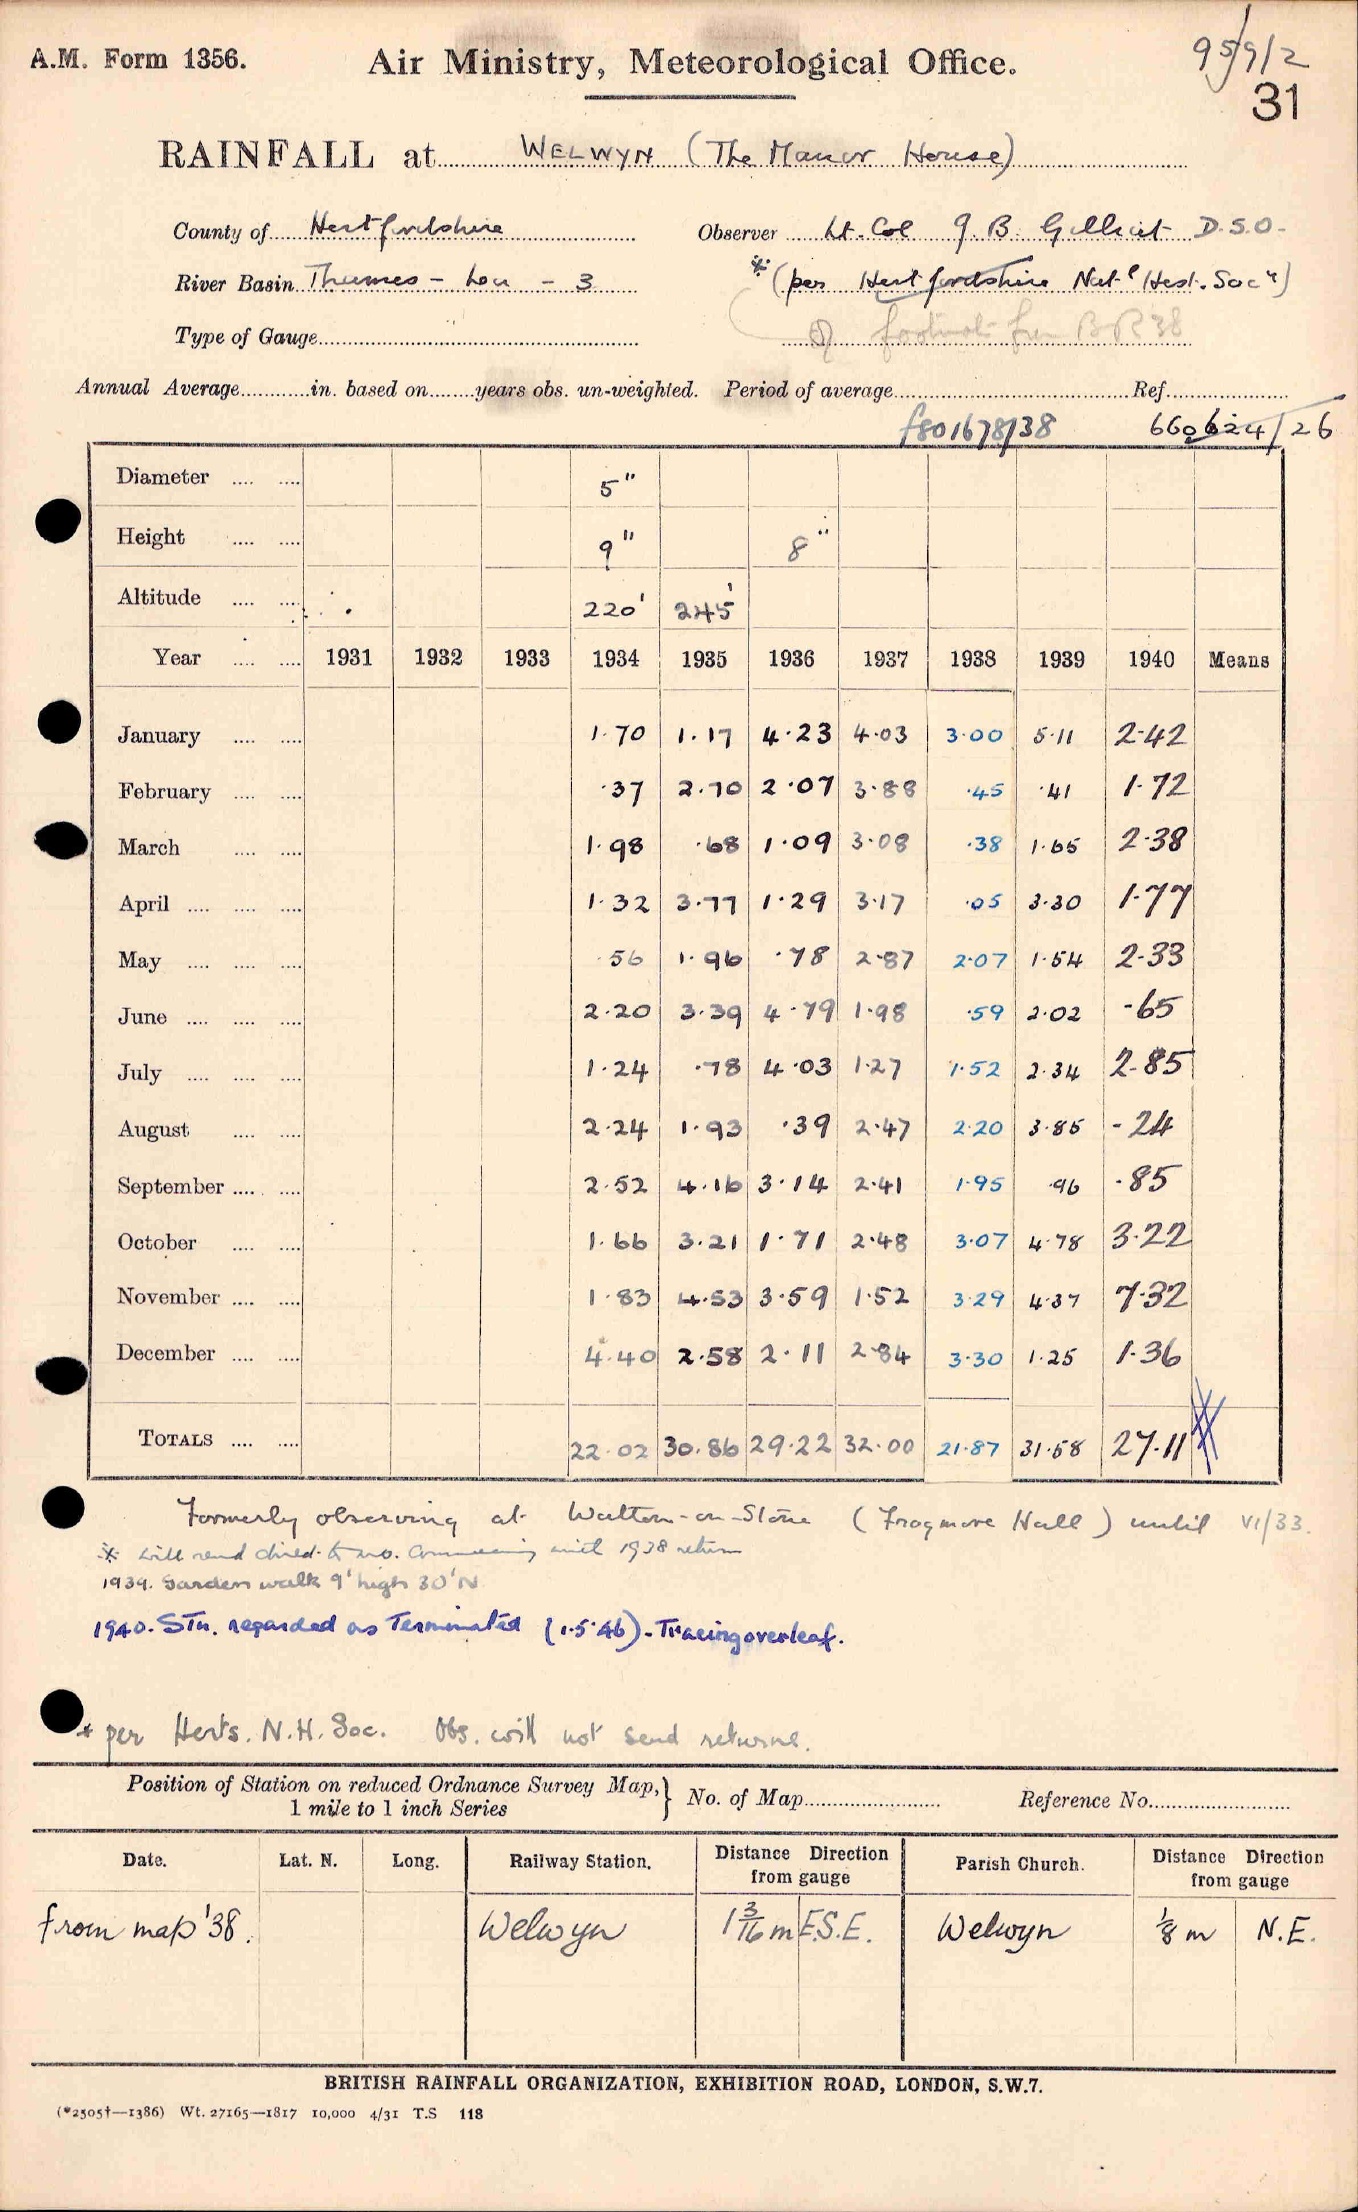 A.M. Form 1356.
Air Ministry, Meteorological Office.
95/9/2
31
RAINFALL at WELWYN (The Manor House)
County of Hertfordshire
Observer Lt. Col G. B. Gilliat D.S.O.
River Basin Thames - Lea - 3
* (per Hertfordshire Nat^l Hist. Soc^y)
Type of Gauge
Annual Average............in. based on........years obs. un-weighted. Period of average Ref.
f801678/38 660624/26
Diameter .... .... 5"
Height .... .... 9" 8"
Altitude .... .... 220' 245'
Year .... .... 1931 1932 1933 1934 1935 1936 1937 1938 1939 1940 Means
January .... .... 1.70 1.17 4.23 4.03 3.00 5.11 2.42
February .... .... .37 2.70 2.07 3.88 .45 .41 1.72
March .... .... 1.98 .68 1.09 3.08 .38 1.65 2.38
April .... .... .... 1.32 3.77 1.29 3.17 .05 3.30 1.77
May .... .... .... .56 1.96 .78 2.87 2.07 1.54 2.33
June .... .... .... 2.20 3.39 4.79 1.98 .59 2.02 .65
July .... .... .... 1.24 .78 4.03 1.27 1.52 2.34 2.85
August .... .... 2.24 1.93 .39 2.47 2.20 3.85 .24
September .... .... 2.52 4.16 3.14 2.41 1.95 .96 .85
October .... .... 1.66 3.21 1.71 2.48 3.07 4.78 3.22
November .... .... 1.83 4.53 3.59 1.52 3.29 4.37 7.32
December .... .... 4.40 2.58 2.11 2.84 3.30 1.25 1.36
TOTALS .... .... 22.02 30.86 29.22 32.00 21.87 31.58 27.11
Formerly observing at Watton-on-Stone (Frogmore Hall) until VI/33.
* will send direct to M.O. commencing with 1938 return
1939. Garden walk 9' high 30' N
1940. STn. regarded as Terminated (1.5.46). Tracing overleaf.
* per Herts. N.H. Soc. Obs. will not send returns.
Position of Station on reduced Ordnance Survey Map, 1 mile to 1 inch Series } No. of Map Reference No.
Date. Lat. N. Long. Railway Station. Distance Direction from gauge Parish Church. Distance Direction from gauge
from map '38. Welwyn 1 3/16 m E.S.E. Welwyn 1/8 m N.E.
BRITISH RAINFALL ORGANIZATION, EXHIBITION ROAD, LONDON, S.W.7.
(*2505†—1386) Wt. 27165—1817 10,000 4/31 T.S 118